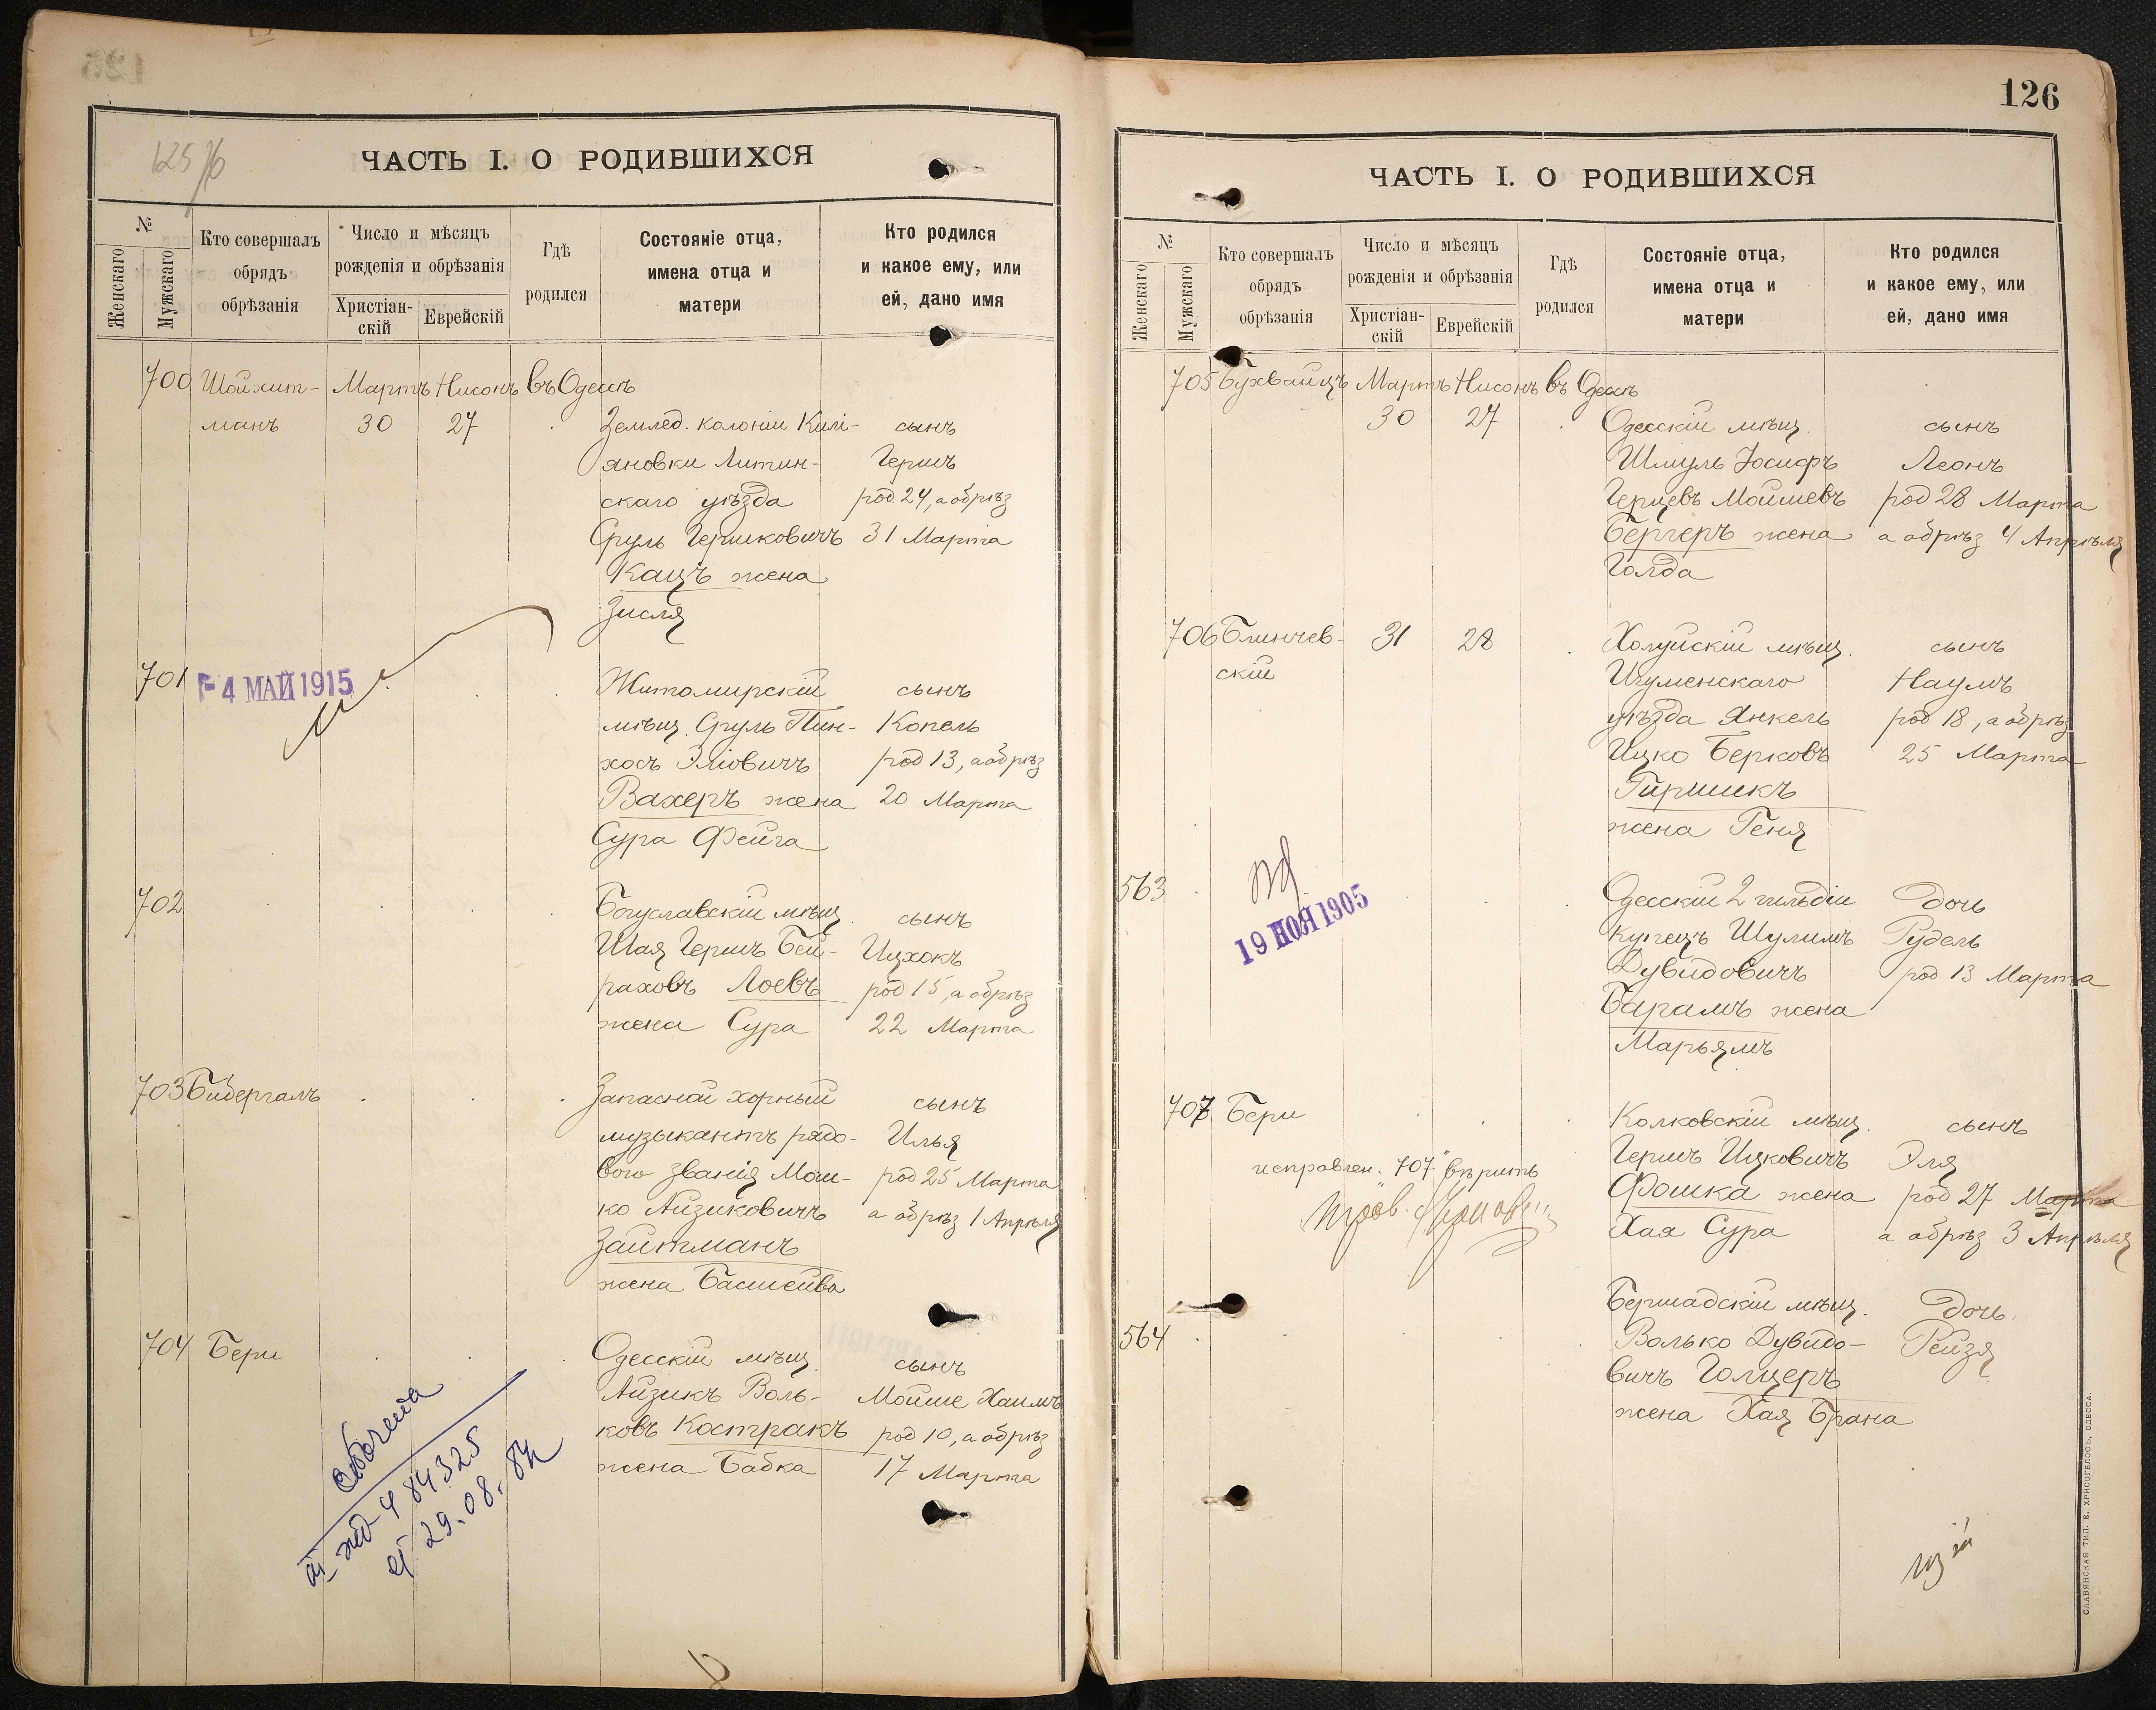 125
ЧАСТЬ I. О РОДИВШИХСЯ
№
Женскаго
Мужскаго
Кто совершалъ
обрядъ
обрѣзанія
Число и мѣсяцъ
рожденія и обрѣзанія
Христіан-
скій
Еврейскій
Гдѣ
родился
Состояніе отца,
имена отца и
матери
Кто родился
и какое ему, или
ей, дано имя
700 Шойхит- Мартъ Нисонъ въ Одессѣ
манъ 30 27 Землед. колоніи Килі- сынъ
яновки Литин- Гершъ
скаго уѣзда род 24, а обрѣз
Сруль Гершковичъ 31 Марта
Кацъ жена
Зисля
701 4 МАЙ 1915 Житомирскій сынъ
мѣщ. Сруль Пин- Копель
хосъ Эліовичъ род 13, а обрѣз
Вахеръ жена 20 Марта
Сура Фейга
702 Богуславскій мѣщ. сынъ
Шая Гершъ Бей- Ицхокъ
раховъ Лоевъ род 15, а обрѣз
жена Сура 22 Марта
703 Бибергалъ Запасной хорный сынъ
музыкантъ рядо- Илья
вого званія Мош- род 25 Марта
ко Айзиковичъ а обрѣз 1 Апрѣля
Зайтманъ
жена Басшейва
704 Бери Одесскій мѣщ. сынъ
Айзикъ Воль- Мойше Хаимъ
ковъ Костракъ род 10, а обрѣз
жена Бабка 17 Марта
484325
29.08.
126
ЧАСТЬ I. О РОДИВШИХСЯ
№
Женскаго
Мужскаго
Кто совершалъ
обрядъ
обрѣзанія
Число и мѣсяцъ
рожденія и обрѣзанія
Христіан-
скій
Еврейскій
Гдѣ
родился
Состояніе отца,
имена отца и
матери
Кто родился
и какое ему, или
ей, дано имя
705 Бухвайцъ Мартъ Нисонъ въ Одессѣ
30 27 Одесскій мѣщ. сынъ
Шмуль Іосифъ Леонъ
Герцевъ Мойшевъ род 28 Марта
Бергеръ жена а обрѣз 4 Апрѣля
Голда
706 Блинчев- 31 28 Холуйскій мѣщ. сынъ
скій Игуменскаго Наумъ
уѣзда Янкель род 18, а обрѣз
Ицко Берковъ 25 Марта
Гиршикъ
жена Геня
563 19 НОЯ 1905 Одесскій 2 гильдіи дочь
купецъ Шулимъ Рудель
Дувидовичъ род 13 Марта
Барамъ жена
Марьямъ
707 Бери Колковскій мѣщ. сынъ
исправлен. "707" вѣрить Гершъ Ицковичъ Эля
Фошка жена род 27 Марта
Хая Сура а обрѣз 3 Апрѣля
Бершадскій мѣщ. дочь
564 Волько Дувидо- Рейзя
вичъ Голцеръ
жена Хая Брана
СЛАВЯНСКАЯ ТИП. Е. ХРИСОГЕЛОСЪ, ОДЕССА.